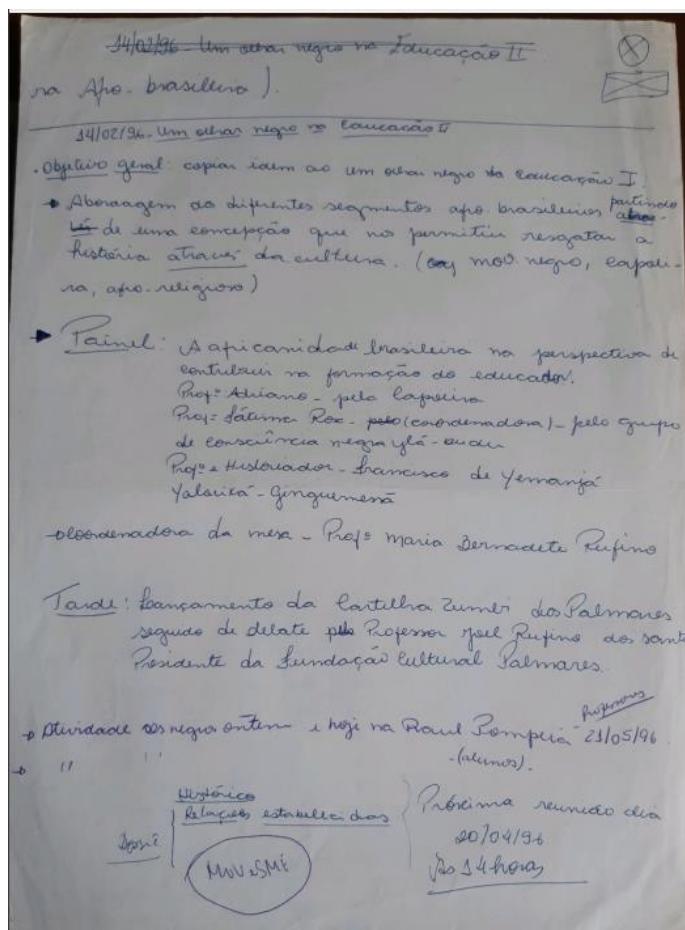 14/02/96 - Um olhar negro na Educação II
na Afro-brasileira ).
14/02/96 - Um olhar negro na Educação II
. Objetivo geral: copiar idem ao um olhar negro da Educação I.
Abordagem do diferentes segmentos afro-brasileiros partindo
de uma concepção que nos permitiu resgatar a
história através da cultura. ( mov. negro, capoei-
ra, afro-religioso)
Painel: A africanidade brasileira na perspectiva de
contribuir na formação do educador.
Profº Adriano - pela Capoeira
Profª Fátima - (coordenadora) - pelo grupo
de consciência negra
Profº e Historiador - Francisco de Yemanjá
Yalorixá -
Coordenadora da mesa - Profª Maria Bernadete Rufino
Tarde: Lançamento da Cartilha Zumbi dos Palmares
seguido de debate pelo Professor Joel Rufino dos sant
Presidente da Fundação Cultural Palmares.
Professores
Atividade negra ontem e hoje na Raul Pompéia 21/05/96
" " - (alunos).
Histórico
Relações estabelecidas
Dossiê
Próxima reunião dia
20/04/96
Às 14 horas